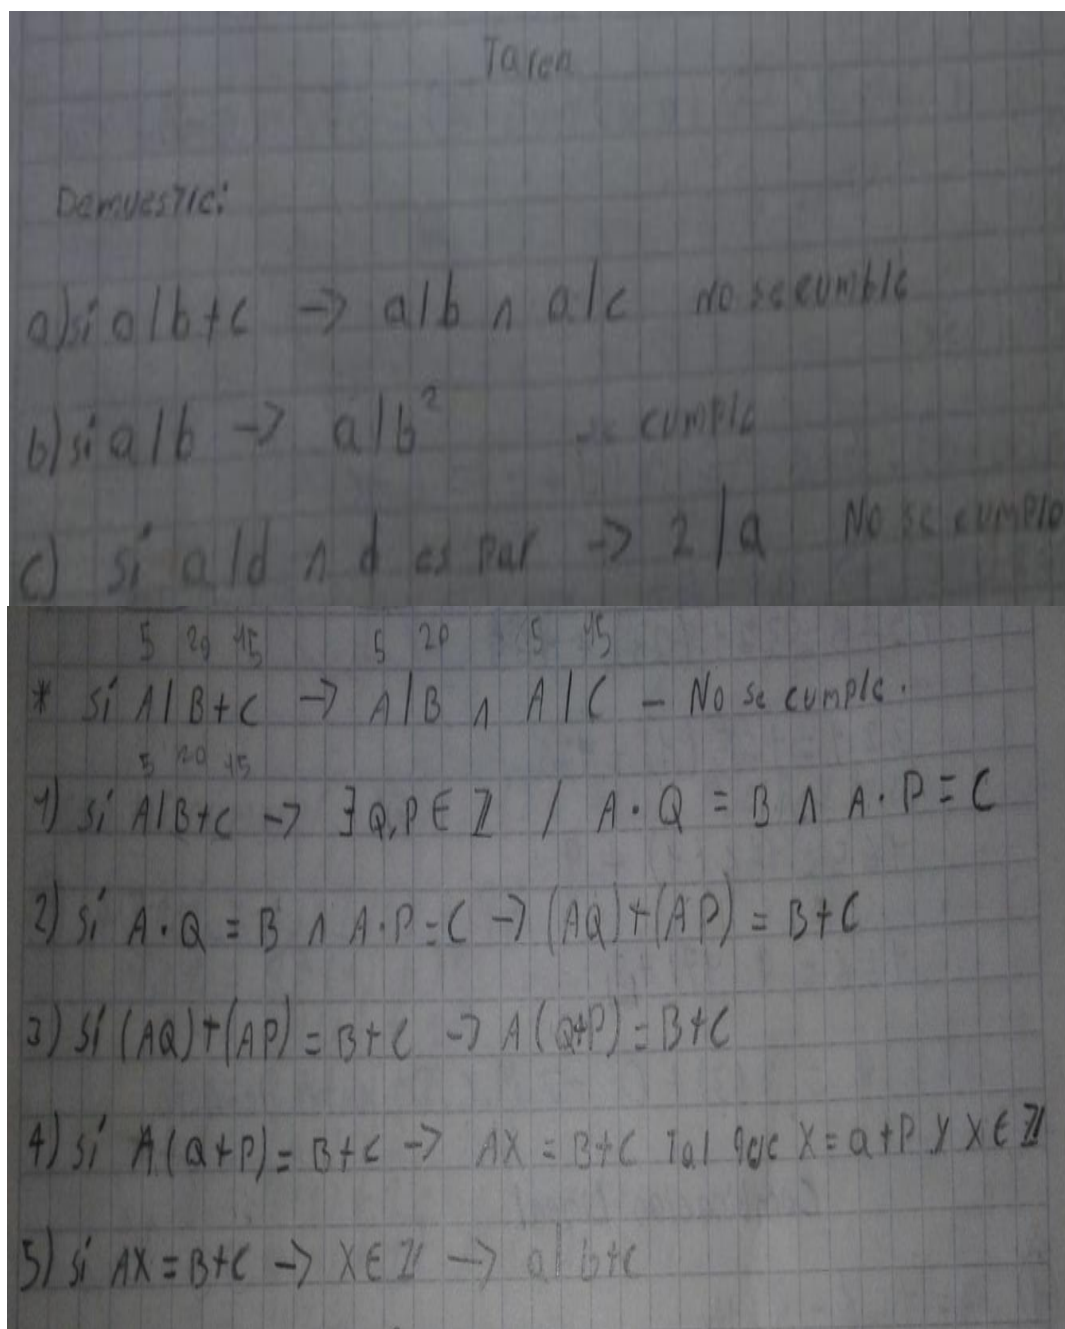 Tarea
Demuestre:
a) si a/b+c → a/b ∧ a/c No se cumple
b) si a/b → a/b² se cumple
c) si a/d ∧ d es par → 2/a No se cumple
5 20 15 5 20 5 15
* si A/B+C → A/B ∧ A/C – No se cumple.
5 20 15
1) si A/B+C → ∃ Q,P ∈ ℤ / A·Q = B ∧ A·P = C
2) si A·Q = B ∧ A·P = C → (AQ)+(AP) = B+C
3) si (AQ)+(AP) = B+C → A(Q+P) = B+C
4) si A(Q+P) = B+C → AX = B+C Tal que X = Q+P y X ∈ ℤ
5) si AX = B+C → X ∈ ℤ → a/b+c